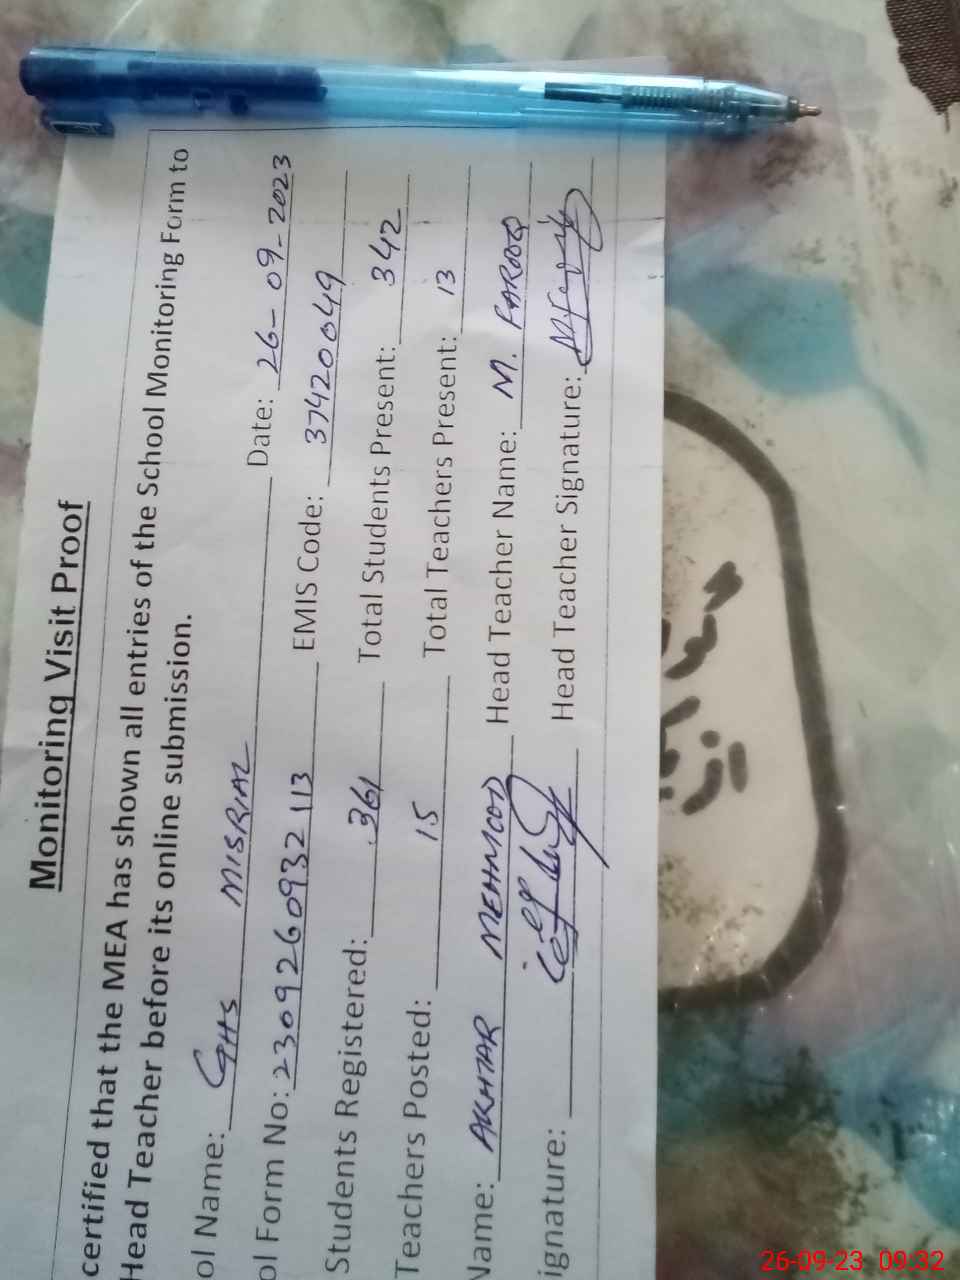 Monitoring Visit Proof
certified that the MEA has shown all entries of the School Monitoring Form to
Head Teacher before its online submission.
ol Name: GHS MISRIAL Date: 26-09-2023
ol Form No: 2309260932113 EMIS Code: 37420049
Students Registered: 361 Total Students Present: 342
Teachers Posted: 15 Total Teachers Present: 13
Name: AKHTAR MEHMOOD Head Teacher Name: M. FAROOQ
ignature: Head Teacher Signature:
26-09-23 09:32